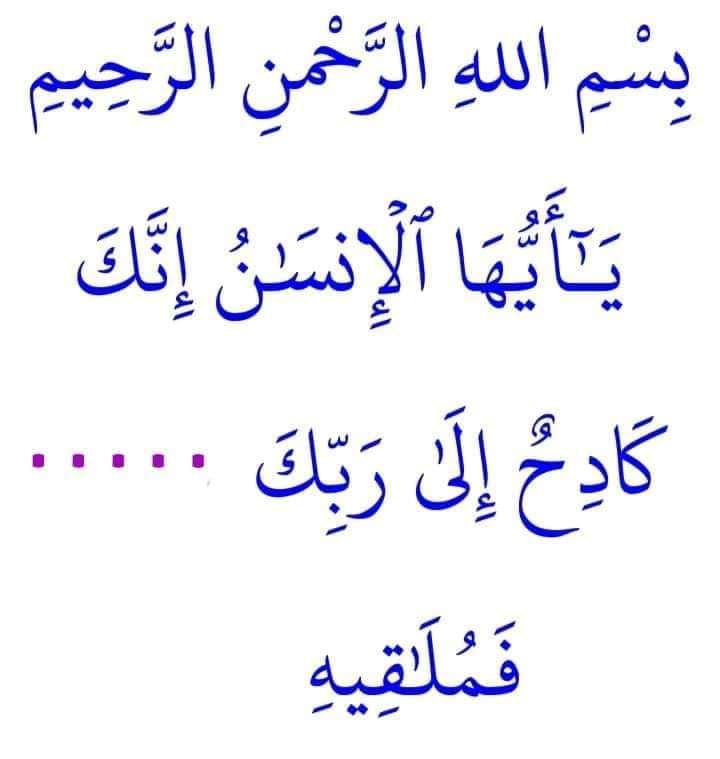 بِسْمِ اللهِ الرَّحْمنِ الرَّحِيمِ
يَـٰٓأَيُّهَا ٱلْإِنسَـٰنُ إِنَّكَ
كَادِحٌ إِلَىٰ رَبِّكَ .....
فَمُلَـٰقِيهِ